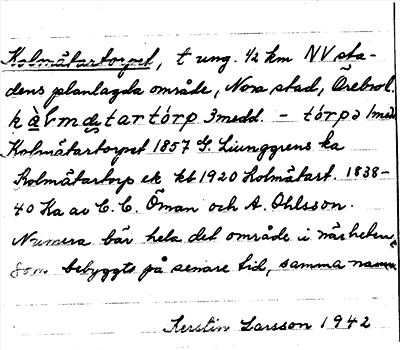 Kolmätartorpet, t ung. 1/2 km NV sta-
dens planlagda område, Nora stad, Örebro l.
kὰlmɑtartórp 3 medd. – tórpə 1 medd
Kolmätartorpet 1857 G. Ljunggrens ka
Kolmätartorp ek kb 1920 Kolmätart. 1838–
40 Ka av C. C. Öman och A. Ohlsson.
Numera bär hela det område i närheten,
som bebyggts på senare tid, samma namn.
Kerstin Larsson 1942